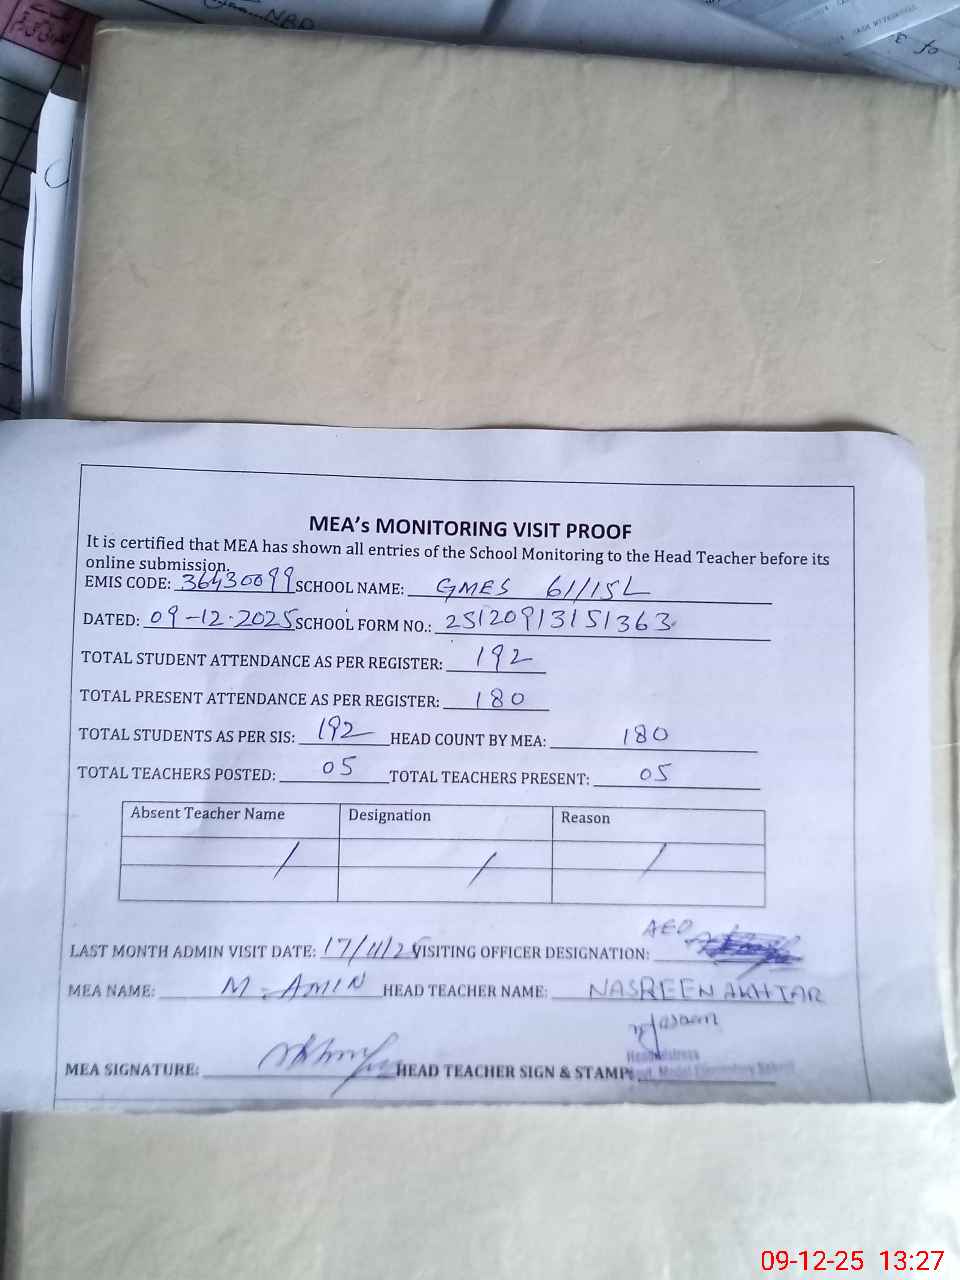 NBP
MEA's MONITORING VISIT PROOF
It is certified that MEA has shown all entries of the School Monitoring to the Head Teacher before its
online submission.
EMIS CODE: 36430099 SCHOOL NAME: GMES 61/15L
DATED: 09-12-2025 SCHOOL FORM NO.: 25120913151363
TOTAL STUDENT ATTENDANCE AS PER REGISTER: 192
TOTAL PRESENT ATTENDANCE AS PER REGISTER: 180
TOTAL STUDENTS AS PER SIS: 192 HEAD COUNT BY MEA: 180
TOTAL TEACHERS POSTED: 05 TOTAL TEACHERS PRESENT: 05
Absent Teacher Name Designation Reason
/ / /
LAST MONTH ADMIN VISIT DATE: 17/11/25 VISITING OFFICER DESIGNATION: AEO
MEA NAME: M. AMIN HEAD TEACHER NAME: NASREEN AKHTAR
MEA SIGNATURE: HEAD TEACHER SIGN & STAMP:
Headmistress
Govt. Model Elementary School
09-12-25 13:27